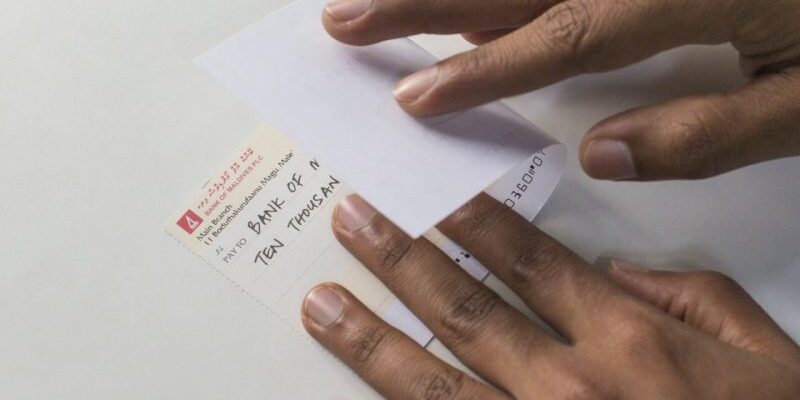 BANK OF MALDIVES PLC
Main Branch
11 Boduthakurufaanu Magu, Male'
PAY TO BANK OF
TEN THOUSAN